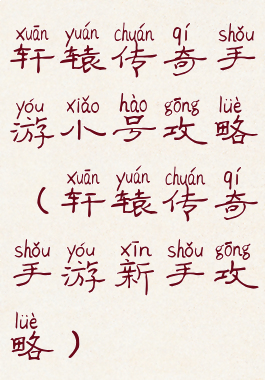 xuān yuán chuán qí shǒu
轩辕传奇手
yóu xiǎo hào gōng lüè
游小号攻略
xuān yuán chuán qí
（轩辕传奇
shǒu yóu xīn shǒu gōng
手游新手攻
lüè
略）